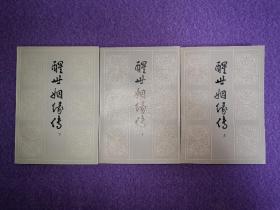 醒世姻缘传
下
醒世姻缘传
醒世姻缘传
上